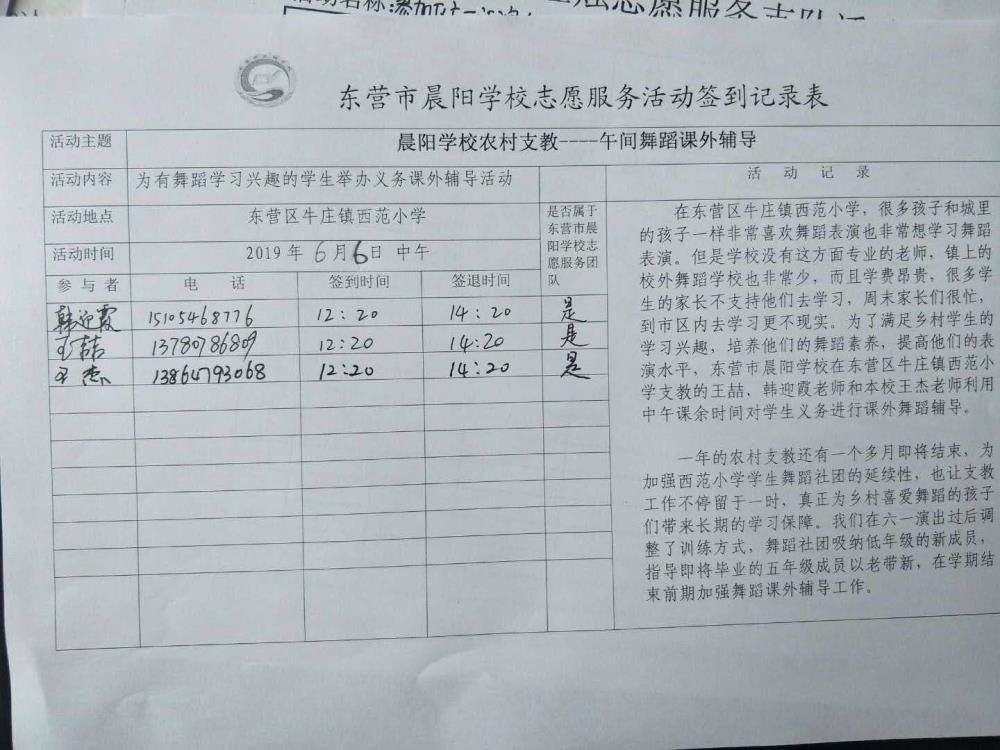 活动名称:参加
志愿服务支队
东营市晨阳学校志愿服务活动签到记录表
活动主题 晨阳学校农村支教----午间舞蹈课外辅导
活动内容 为有舞蹈学习兴趣的学生举办义务课外辅导活动
活动地点 东营区牛庄镇西范小学
活动时间 2019 年 6 月 6 日 中午
是否属于
东营市晨
阳学校志
愿服务团
队
参 与 者 电 话 签到时间 签退时间
韩迎霞 15105468776 12:20 14:20 是
王喆 13780786809 12:20 14:20 是
王杰 13864793068 12:20 14:20 是
活 动 记 录
在东营区牛庄镇西范小学，很多孩子和城里
的孩子一样非常喜欢舞蹈表演也非常想学习舞蹈
表演。但是学校没有这方面专业的老师，镇上的
校外舞蹈学校也非常少，而且学费昂贵，很多学
生的家长不支持他们去学习，周末家长们很忙，
到市区内去学习更不现实。为了满足乡村学生的
学习兴趣，培养他们的舞蹈素养，提高他们的表
演水平，东营市晨阳学校在东营区牛庄镇西范小
学支教的王喆、韩迎霞老师和本校王杰老师利用
中午课余时间对学生义务进行课外舞蹈辅导。
一年的农村支教还有一个多月即将结束，为
加强西范小学学生舞蹈社团的延续性，也让支教
工作不停留于一时，真正为乡村喜爱舞蹈的孩子
们带来长期的学习保障。我们在六一演出过后调
整了训练方式，舞蹈社团吸纳低年级的新成员，
指导即将毕业的五年级成员以老带新，在学期结
束前期加强舞蹈课外辅导工作。